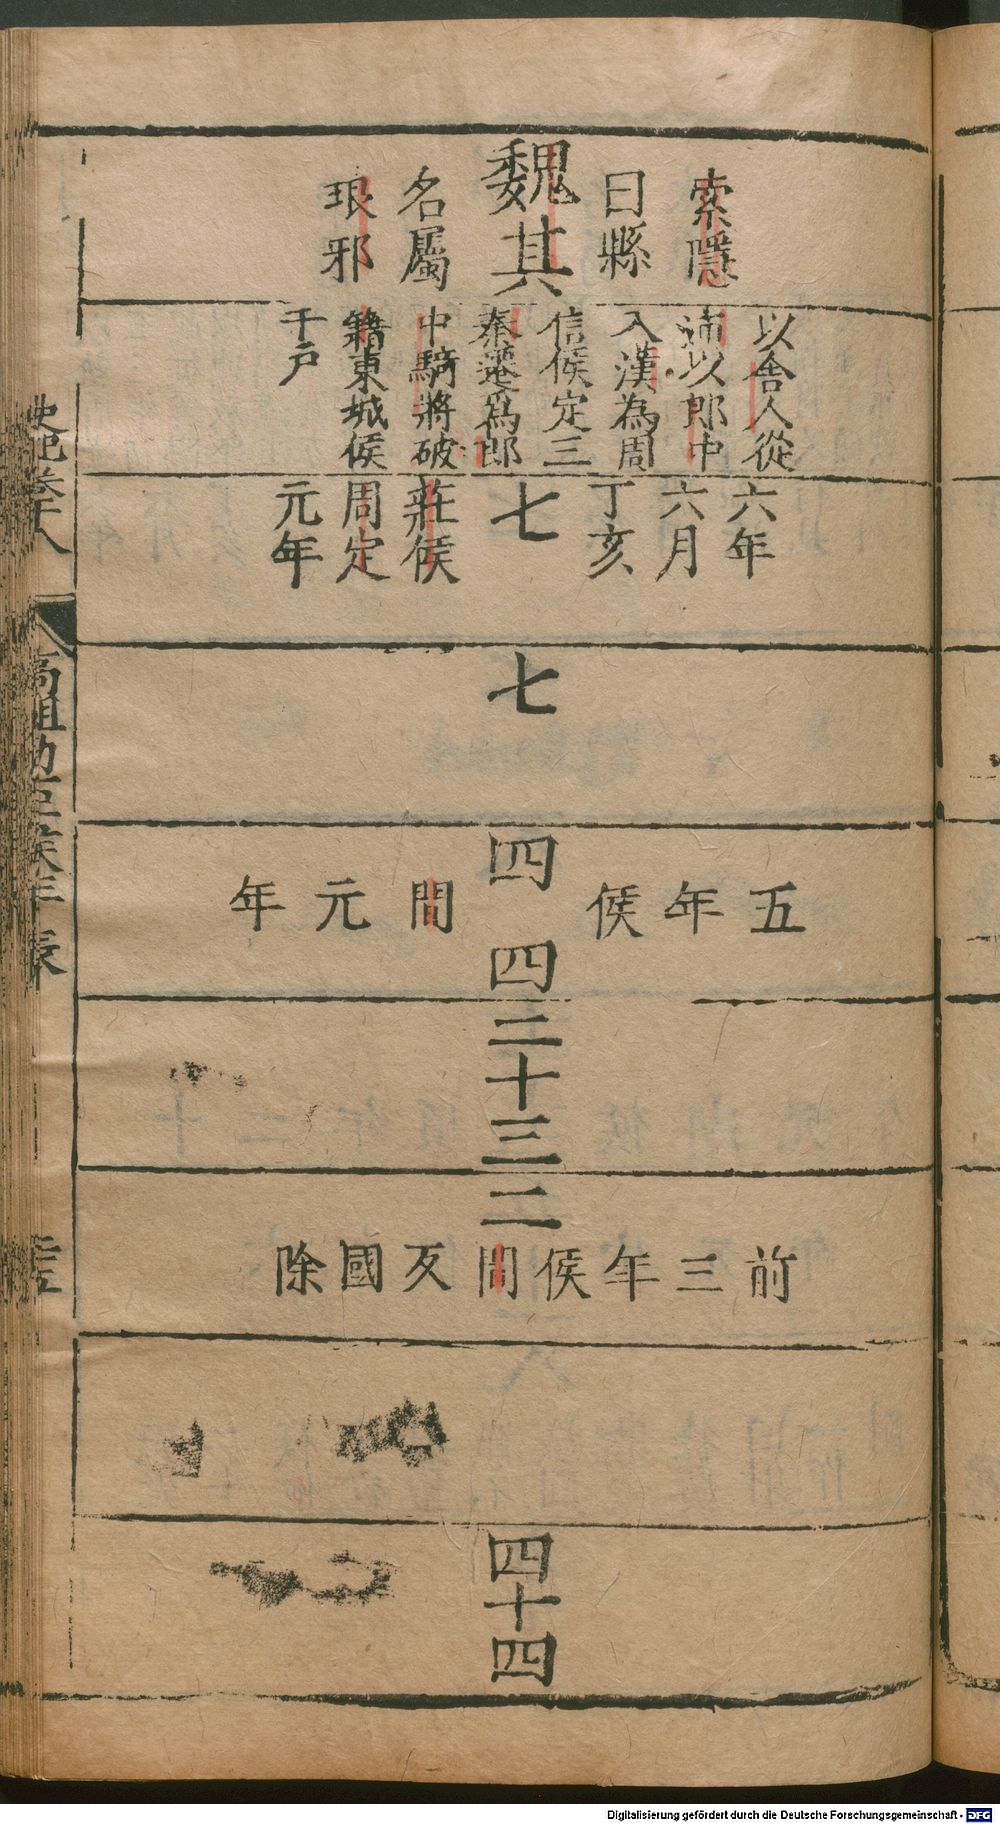 索隱
曰縣
魏其
名屬
琅邪
以舍人從
沛以郎中
入漢為周
信侯定三
秦遷爲郎
中騎將破
籍東城侯
千戶
六年
六月
丁亥
七
莊侯
周定
元年
七
四
五年侯
間元年
四
二十三
二
前三年侯間反國除
四十四
史記卷十八
高祖功臣侯年表
Digitalisierung gefördert durch die Deutsche Forschungsgemeinschaft - DFG